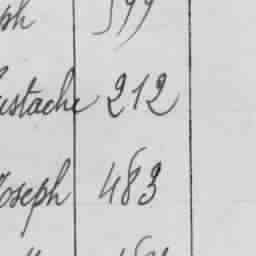 ph 599
ustache 212
Joseph 483